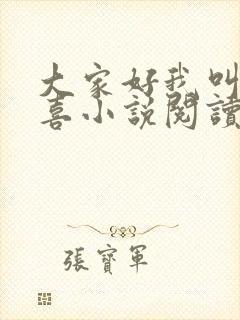 大家好我叫
喜小說閱讀
張寶軍